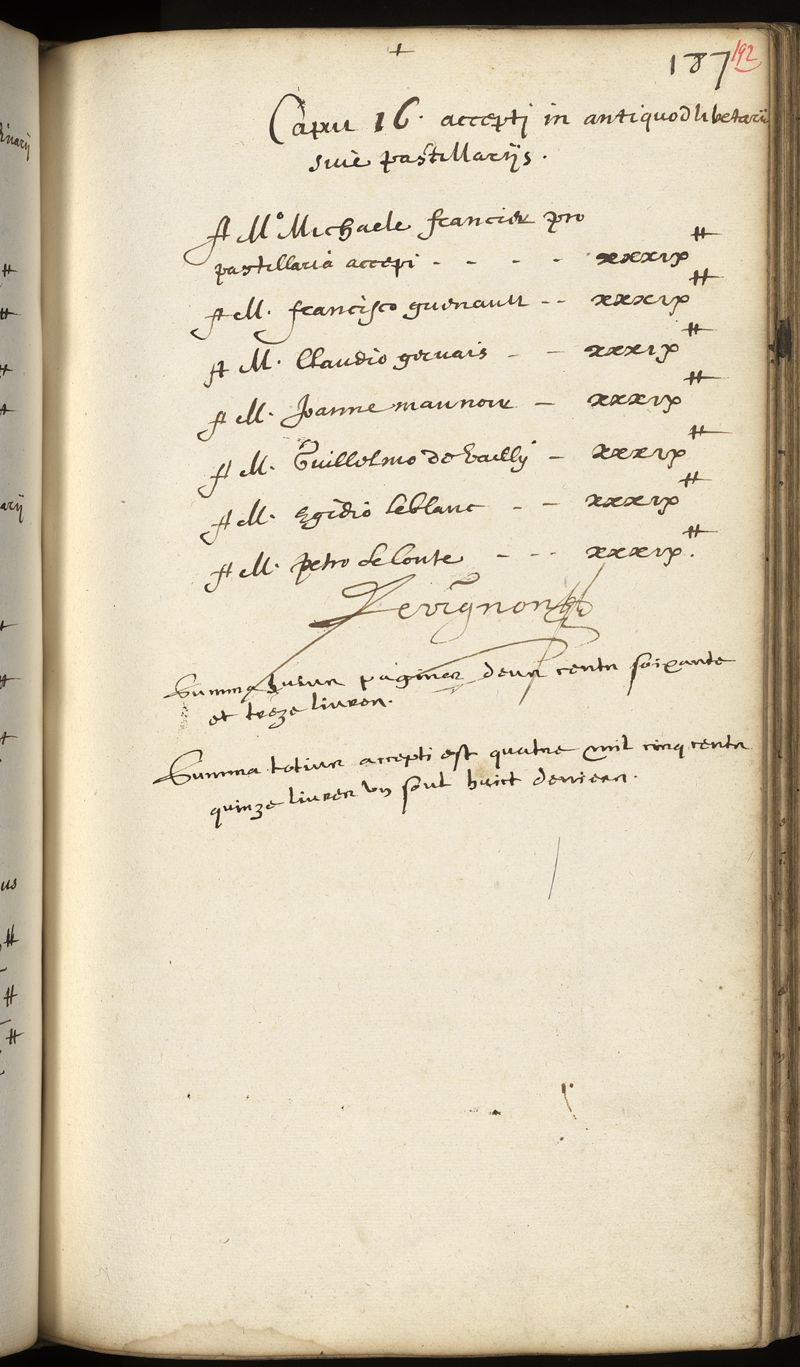 +
187 192
Caput 16. accepti in antiquodlibetarijs
sive pastillarijs.
A Mo Michaele francier pro
pastillaria accepi - - - - xxxix ₶
A M. francisco guenault - - xxxix ₶
A M. Claudio gervais - - xxxix ₶
A M. Joanne maunoir - xxxix ₶
A M. Guillelmo de Vailly - xxxix ₶
A M. Egidio leblanc - - xxxix ₶
A M. Petro le Conte - - - xxxix ₶.
Summa huius paginae deux cents soixante
et treze livres.
Summa totius accepti est quatre mil cinq cents
quinze livres un soul huict deniers.
inarij
arij
us